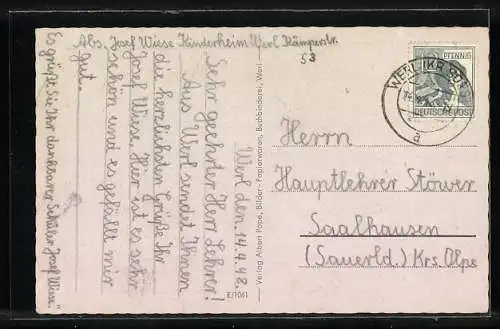 Abs. Josef Wiese Kinderheim Werl Kämperstr.
53
Werl den. 14.4.48.
Sehr geehrter Herr Lehrer!
Aus Werl sendet Ihnen
die herzlichsten Grüße Ihr
Josef Wiese. Hier ist es sehr
schön und es gefällt mir
gut.
Es grüßt Sie Ihr dankbarer Schüler Josef Wiese."
E/1061
Verlag Albert Pape, Bilder - Papierwaren, Buchbinderei, Werl
PFENNIG
DEUTSCHE POST
WERL (KR SOEST)
a
Herrn
Hauptlehrer Stöwer
Saalhausen
(Sauerld.) Krs. Olpe